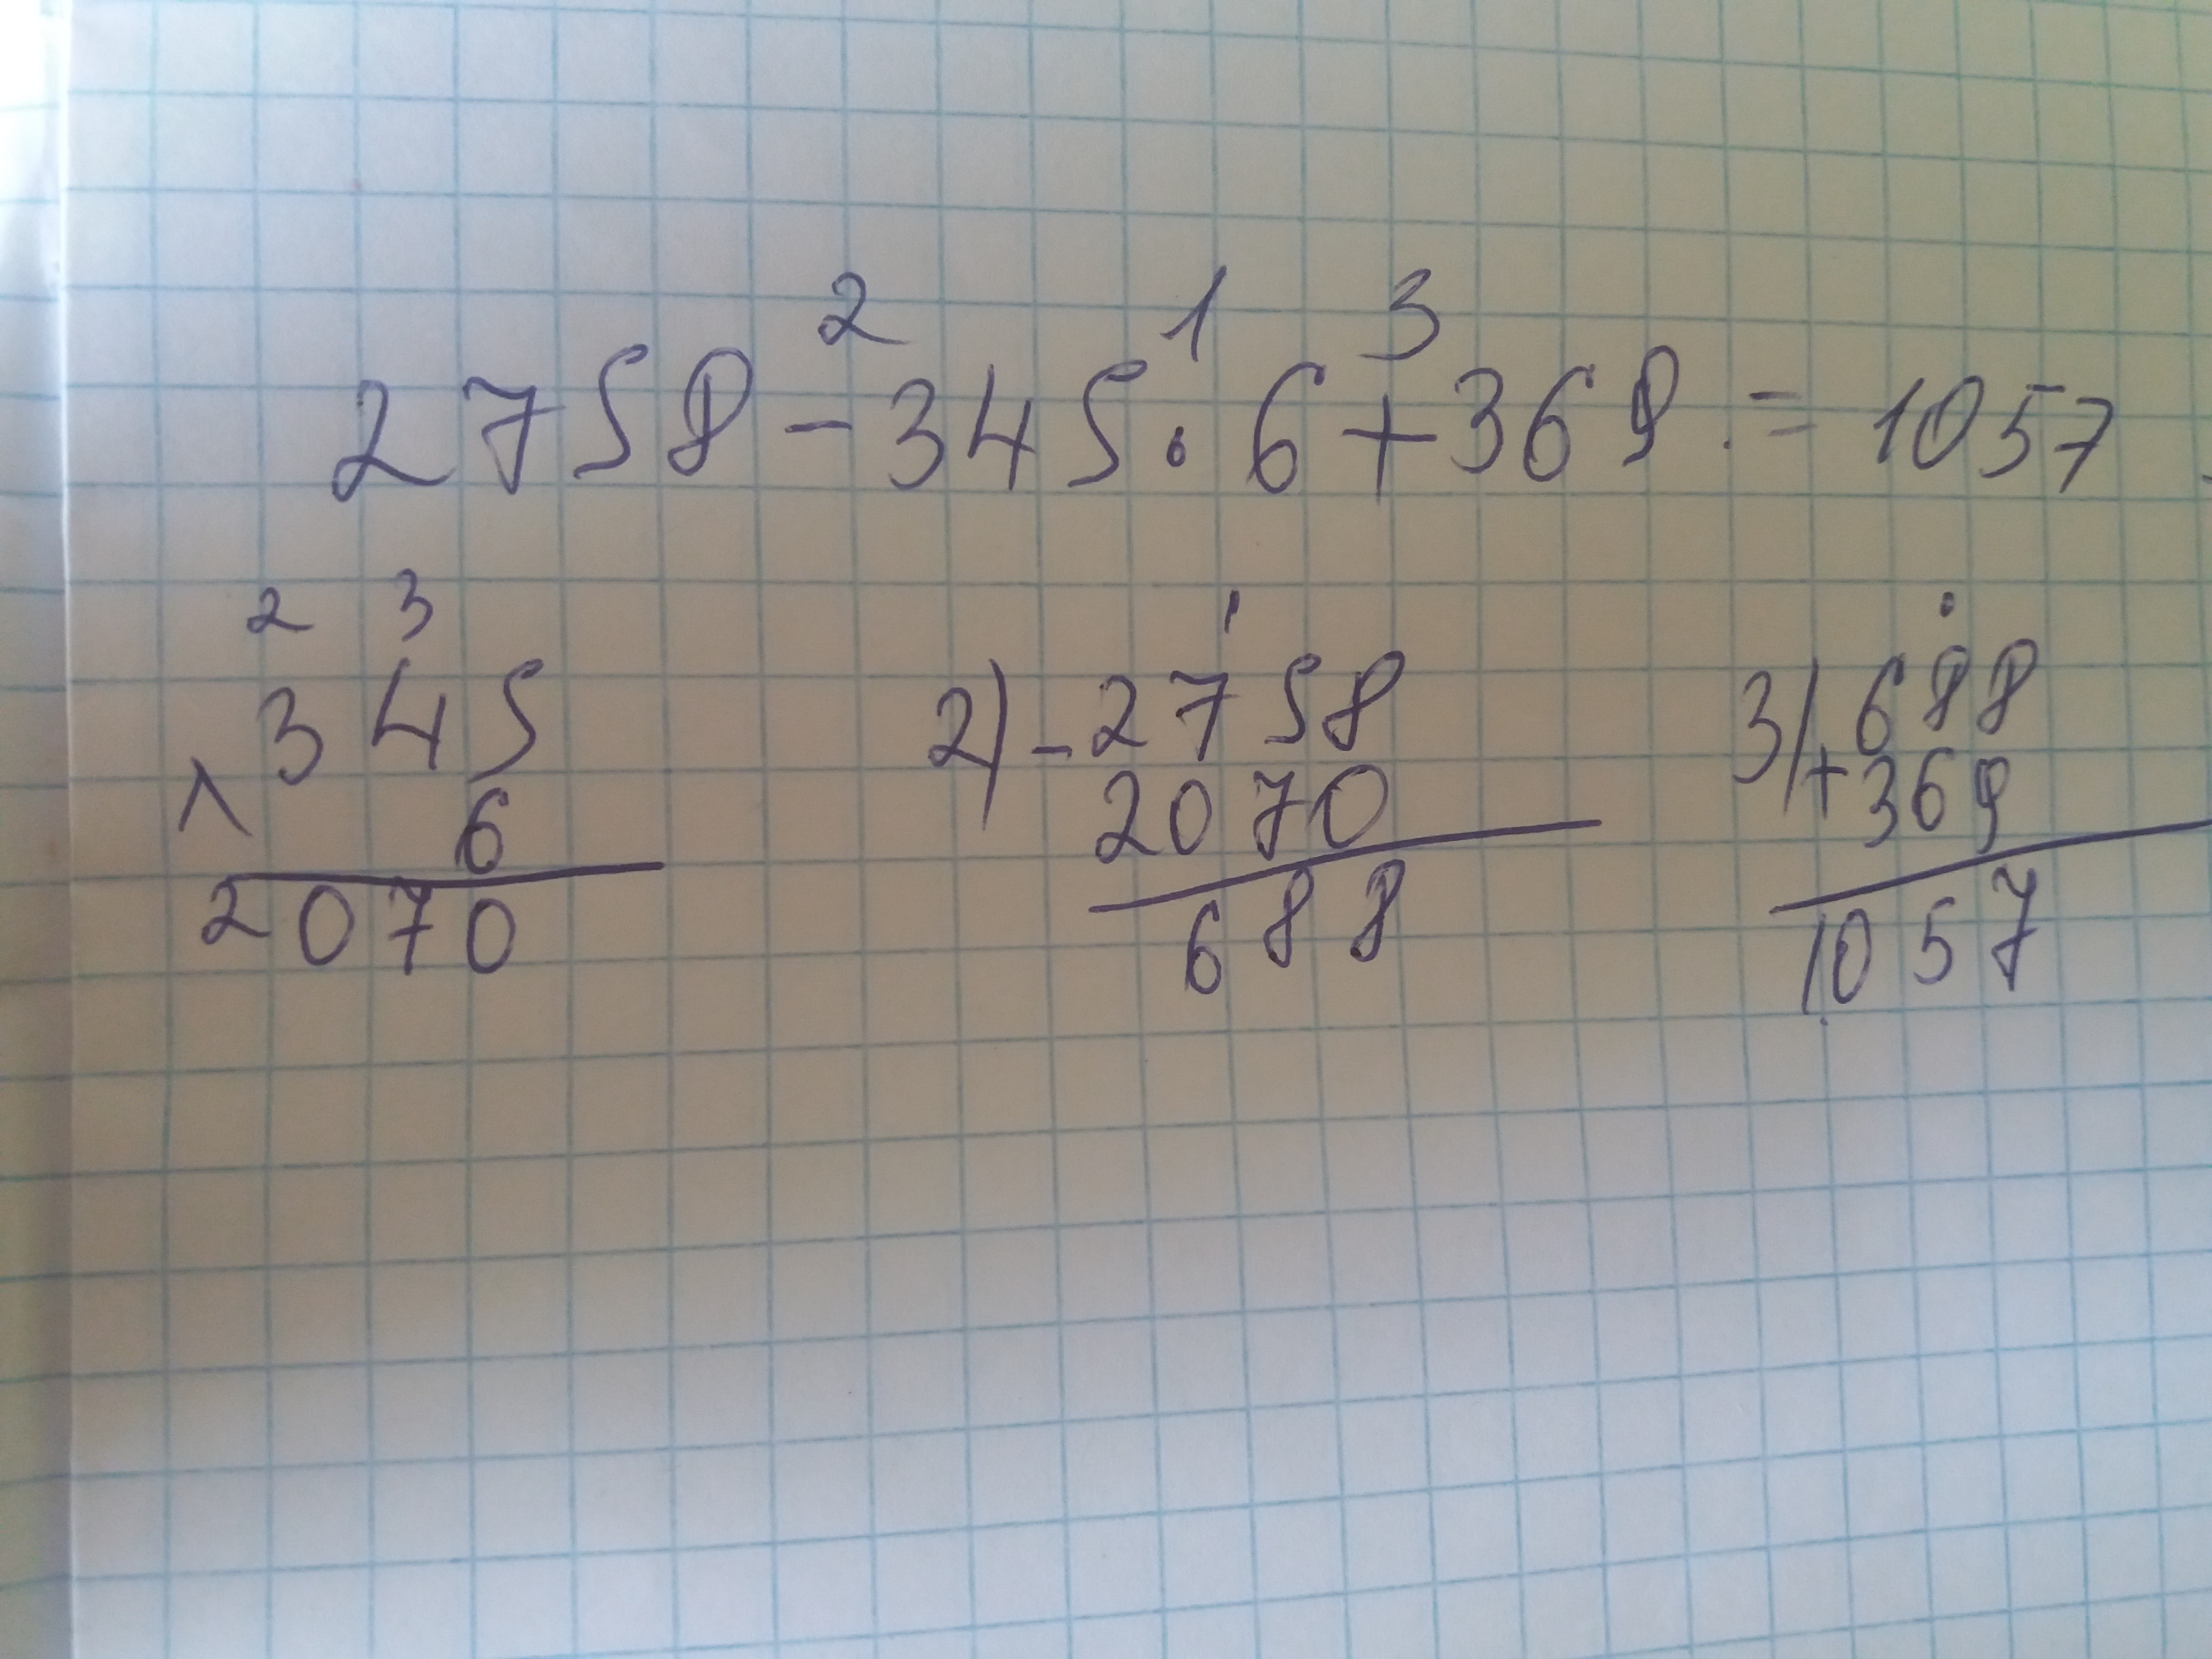 2 1 3
2758 - 345 · 6 + 369 . = 1057
2 3
345
× 6
2070
2) - 2758
2070
688
3) 688
+ 369
1057